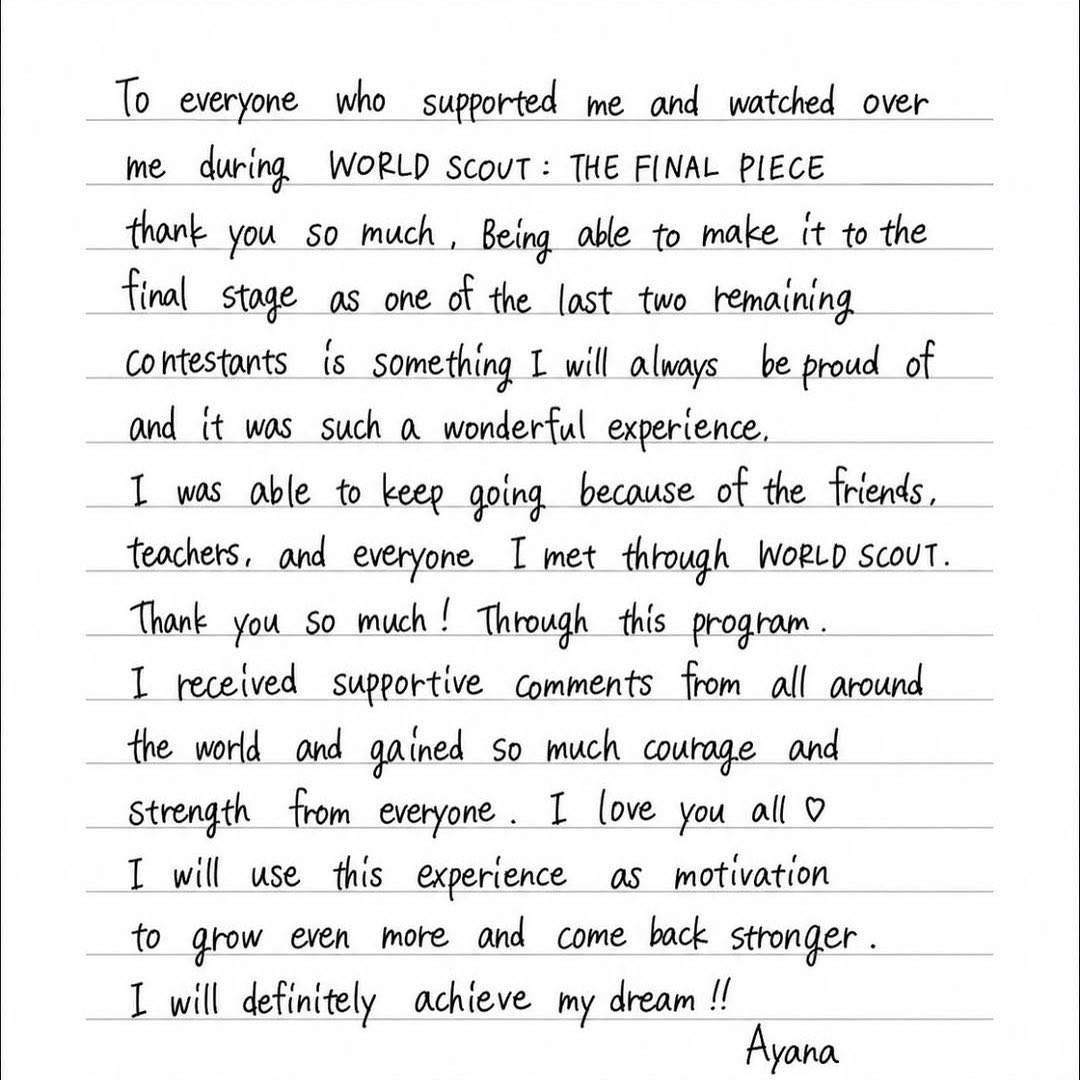 To everyone who supported me and watched over
me during WORLD SCOUT: THE FINAL PIECE
thank you so much, Being able to make it to the
final stage as one of the last two remaining
contestants is something I will always be proud of
and it was such a wonderful experience.
I was able to keep going because of the friends,
teachers, and everyone I met through WORLD SCOUT.
Thank you so much! Through this program.
I received supportive comments from all around
the world and gained so much courage and
strength from everyone. I love you all ♡
I will use this experience as motivation
to grow even more and come back stronger.
I will definitely achieve my dream!!
Ayana